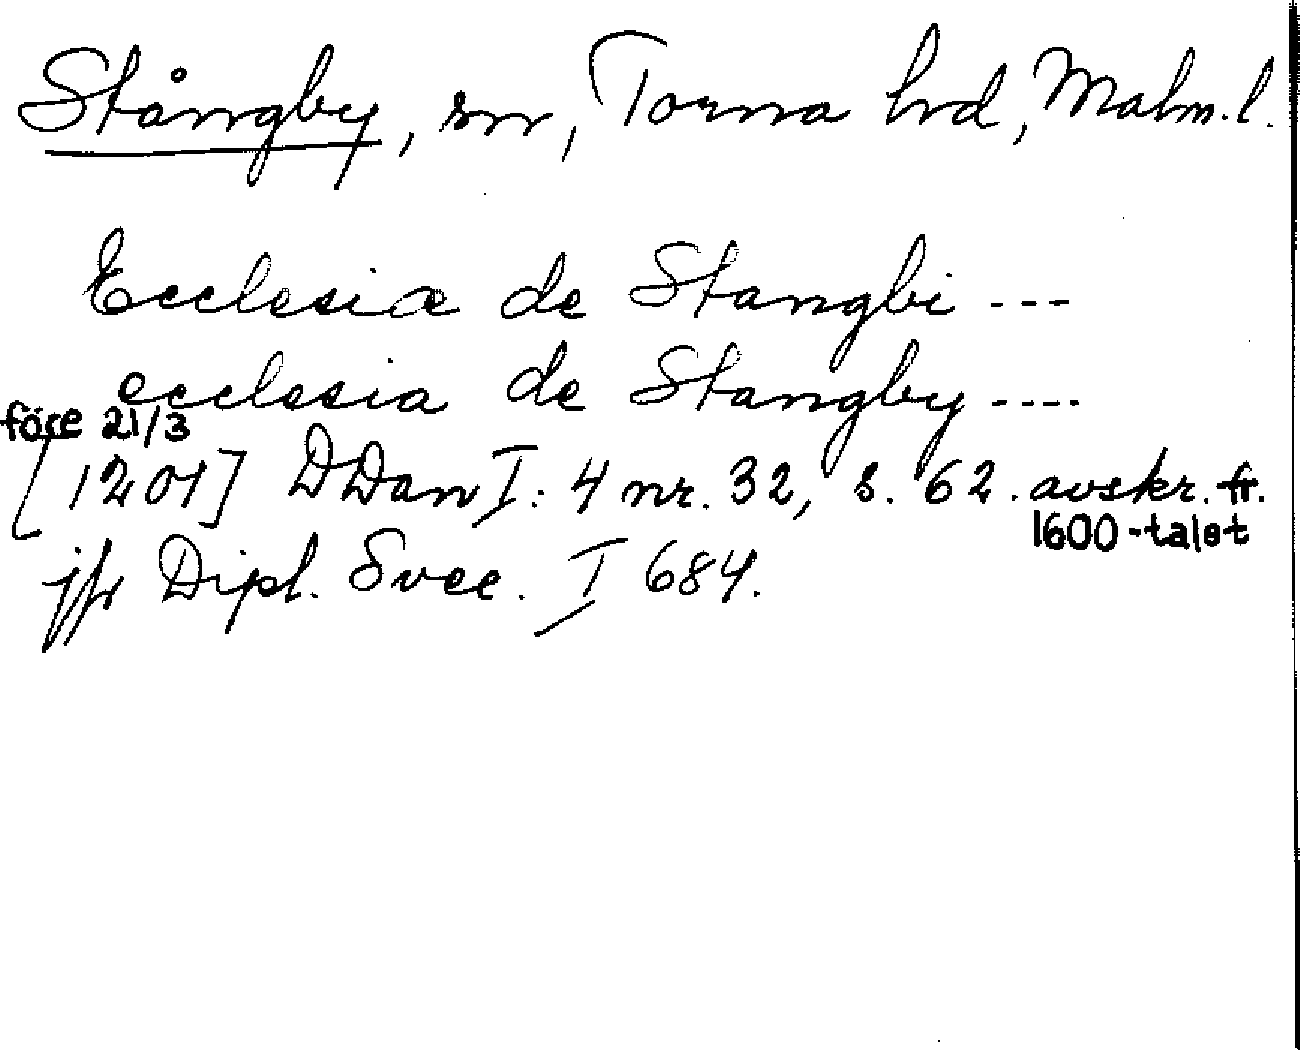 Stångby, sn, Torna hrd, Malm. l.
Ecclesia de Stangbi ---
ecclesia de Stangby ----
före 21/3
[1201] DDan I: 4 nr. 32, s. 62. avskr. fr.
1600-talet
jfr Dipl. Svec. I 684.